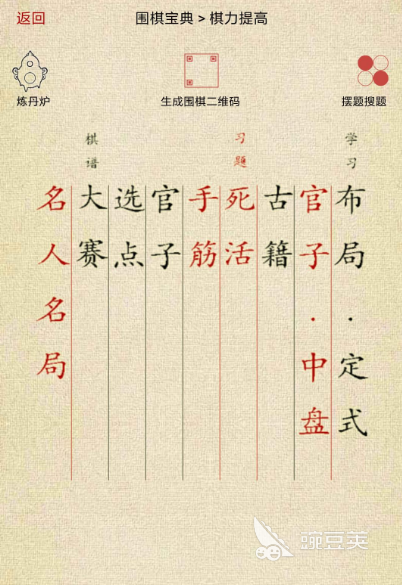 返回
围棋宝典 > 棋力提高
炼丹炉
生成围棋二维码
摆题搜题
学习
习题
棋谱
布局·定式
官子·中盘
古籍
死活
手筋
官子
选点
大赛
名人名局
豌豆荚